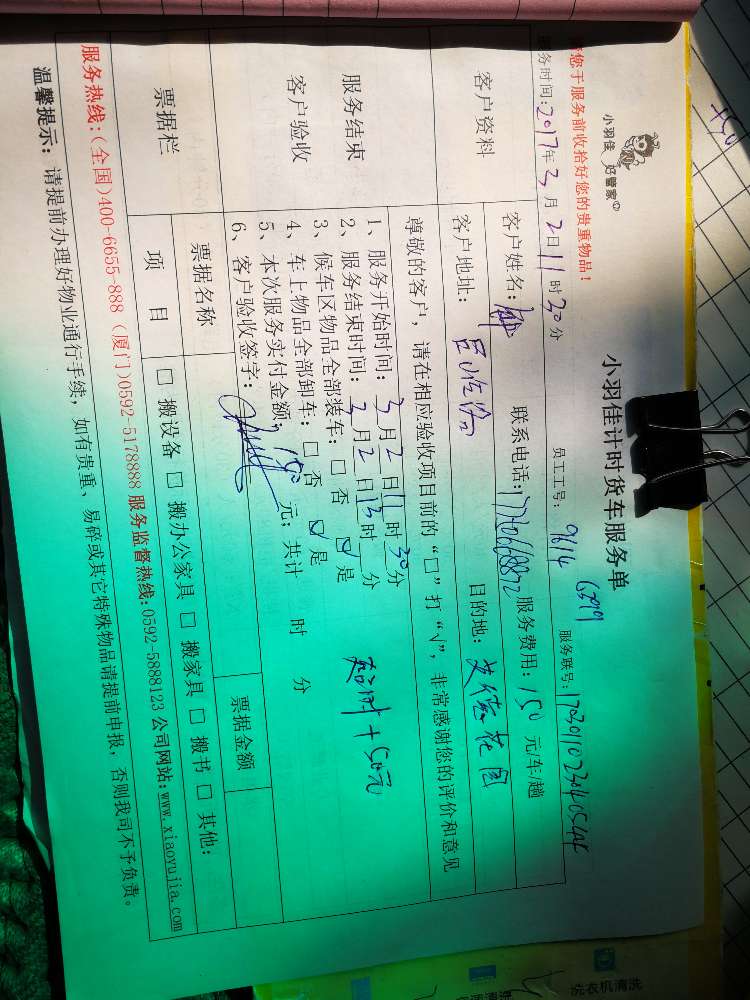 小羽佳 好管家©
小羽佳计时货车服务单
员工工号: 9814
您于服务前收拾好您的贵重物品!
服务时间:2017年3月2日11时20分
客户资料
客户姓名: 联系电话: 服务费用:150元/车/趟
客户地址: 目的地:
尊敬的客户,请在相应验收项目前的“□”打“√”,非常感谢您的评价和意见
服务结束
客户验收
1、服务开始时间:3月2日11时30分
2、服务结束时间:3月2日13时 分
3、候车区物品全部装车:□ 否 ☑ 是
4、车上物品全部卸车:□ 否 ☑ 是
5、本次服务实付金额:150元;共计 时 分
6、客户验收签字:
超时+50元
票据栏
票据名称 票据金额
项 目
□ 搬设备 □ 搬办公家具 □ 搬家具 □ 搬书 □ 其他:
服务热线:(全国)400-6655-888 (厦门)0592-5178888 服务监督热线:0592-5888123 公司网站:www.xiaoyujia.com
温馨提示: 请提前办理好物业通行手续,如有贵重、易碎或其它特殊物品请提前申报,否则我司不予负责。
洗衣机清洗